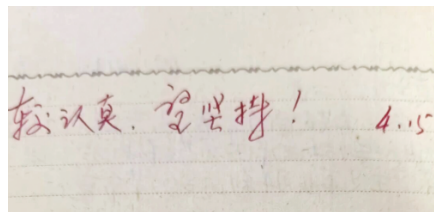 较认真.望坚持! 4.15